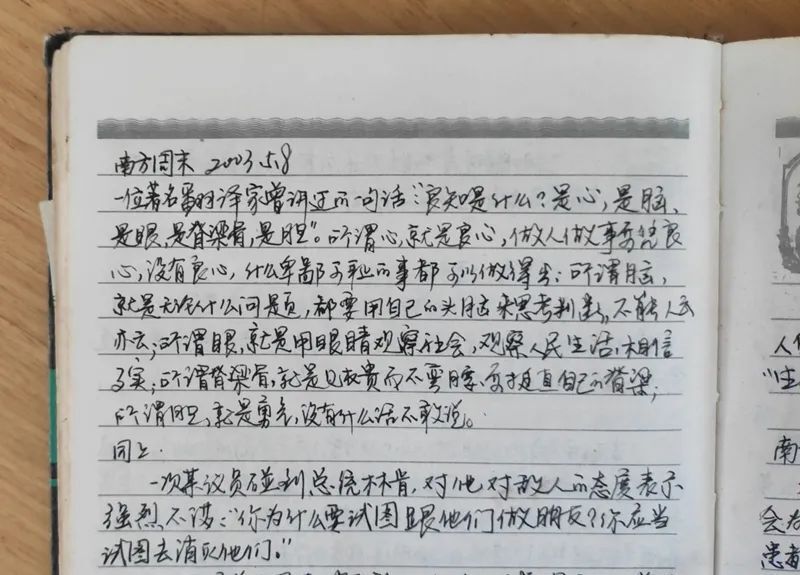 南方周末 2003.5.8
一位著名翻译家曾讲过的一句话:"良知是什么?是心,是脑、
是眼,是脊梁骨,是胆"。所谓心,就是良心,做人做事要凭良
心,没有良心,什么卑鄙可耻的事都可以做得出;所谓脑,
就是无论什么问题,都要用自己的头脑来思考判断,不能人云
亦云;所谓眼,就是用眼睛观察社会,观察人民生活,相信
事实;所谓脊梁骨,就是见权贵而不弯腰,要挺直自己的脊梁;
所谓胆,就是勇气,没有什么话不敢说。
同上.
一次某议员碰到总统林肯,对他对敌人的态度表示
强烈不满:"你为什么要试图跟他们做朋友?你应当
试图去消灭他们。"
人
"生
南
会
患者